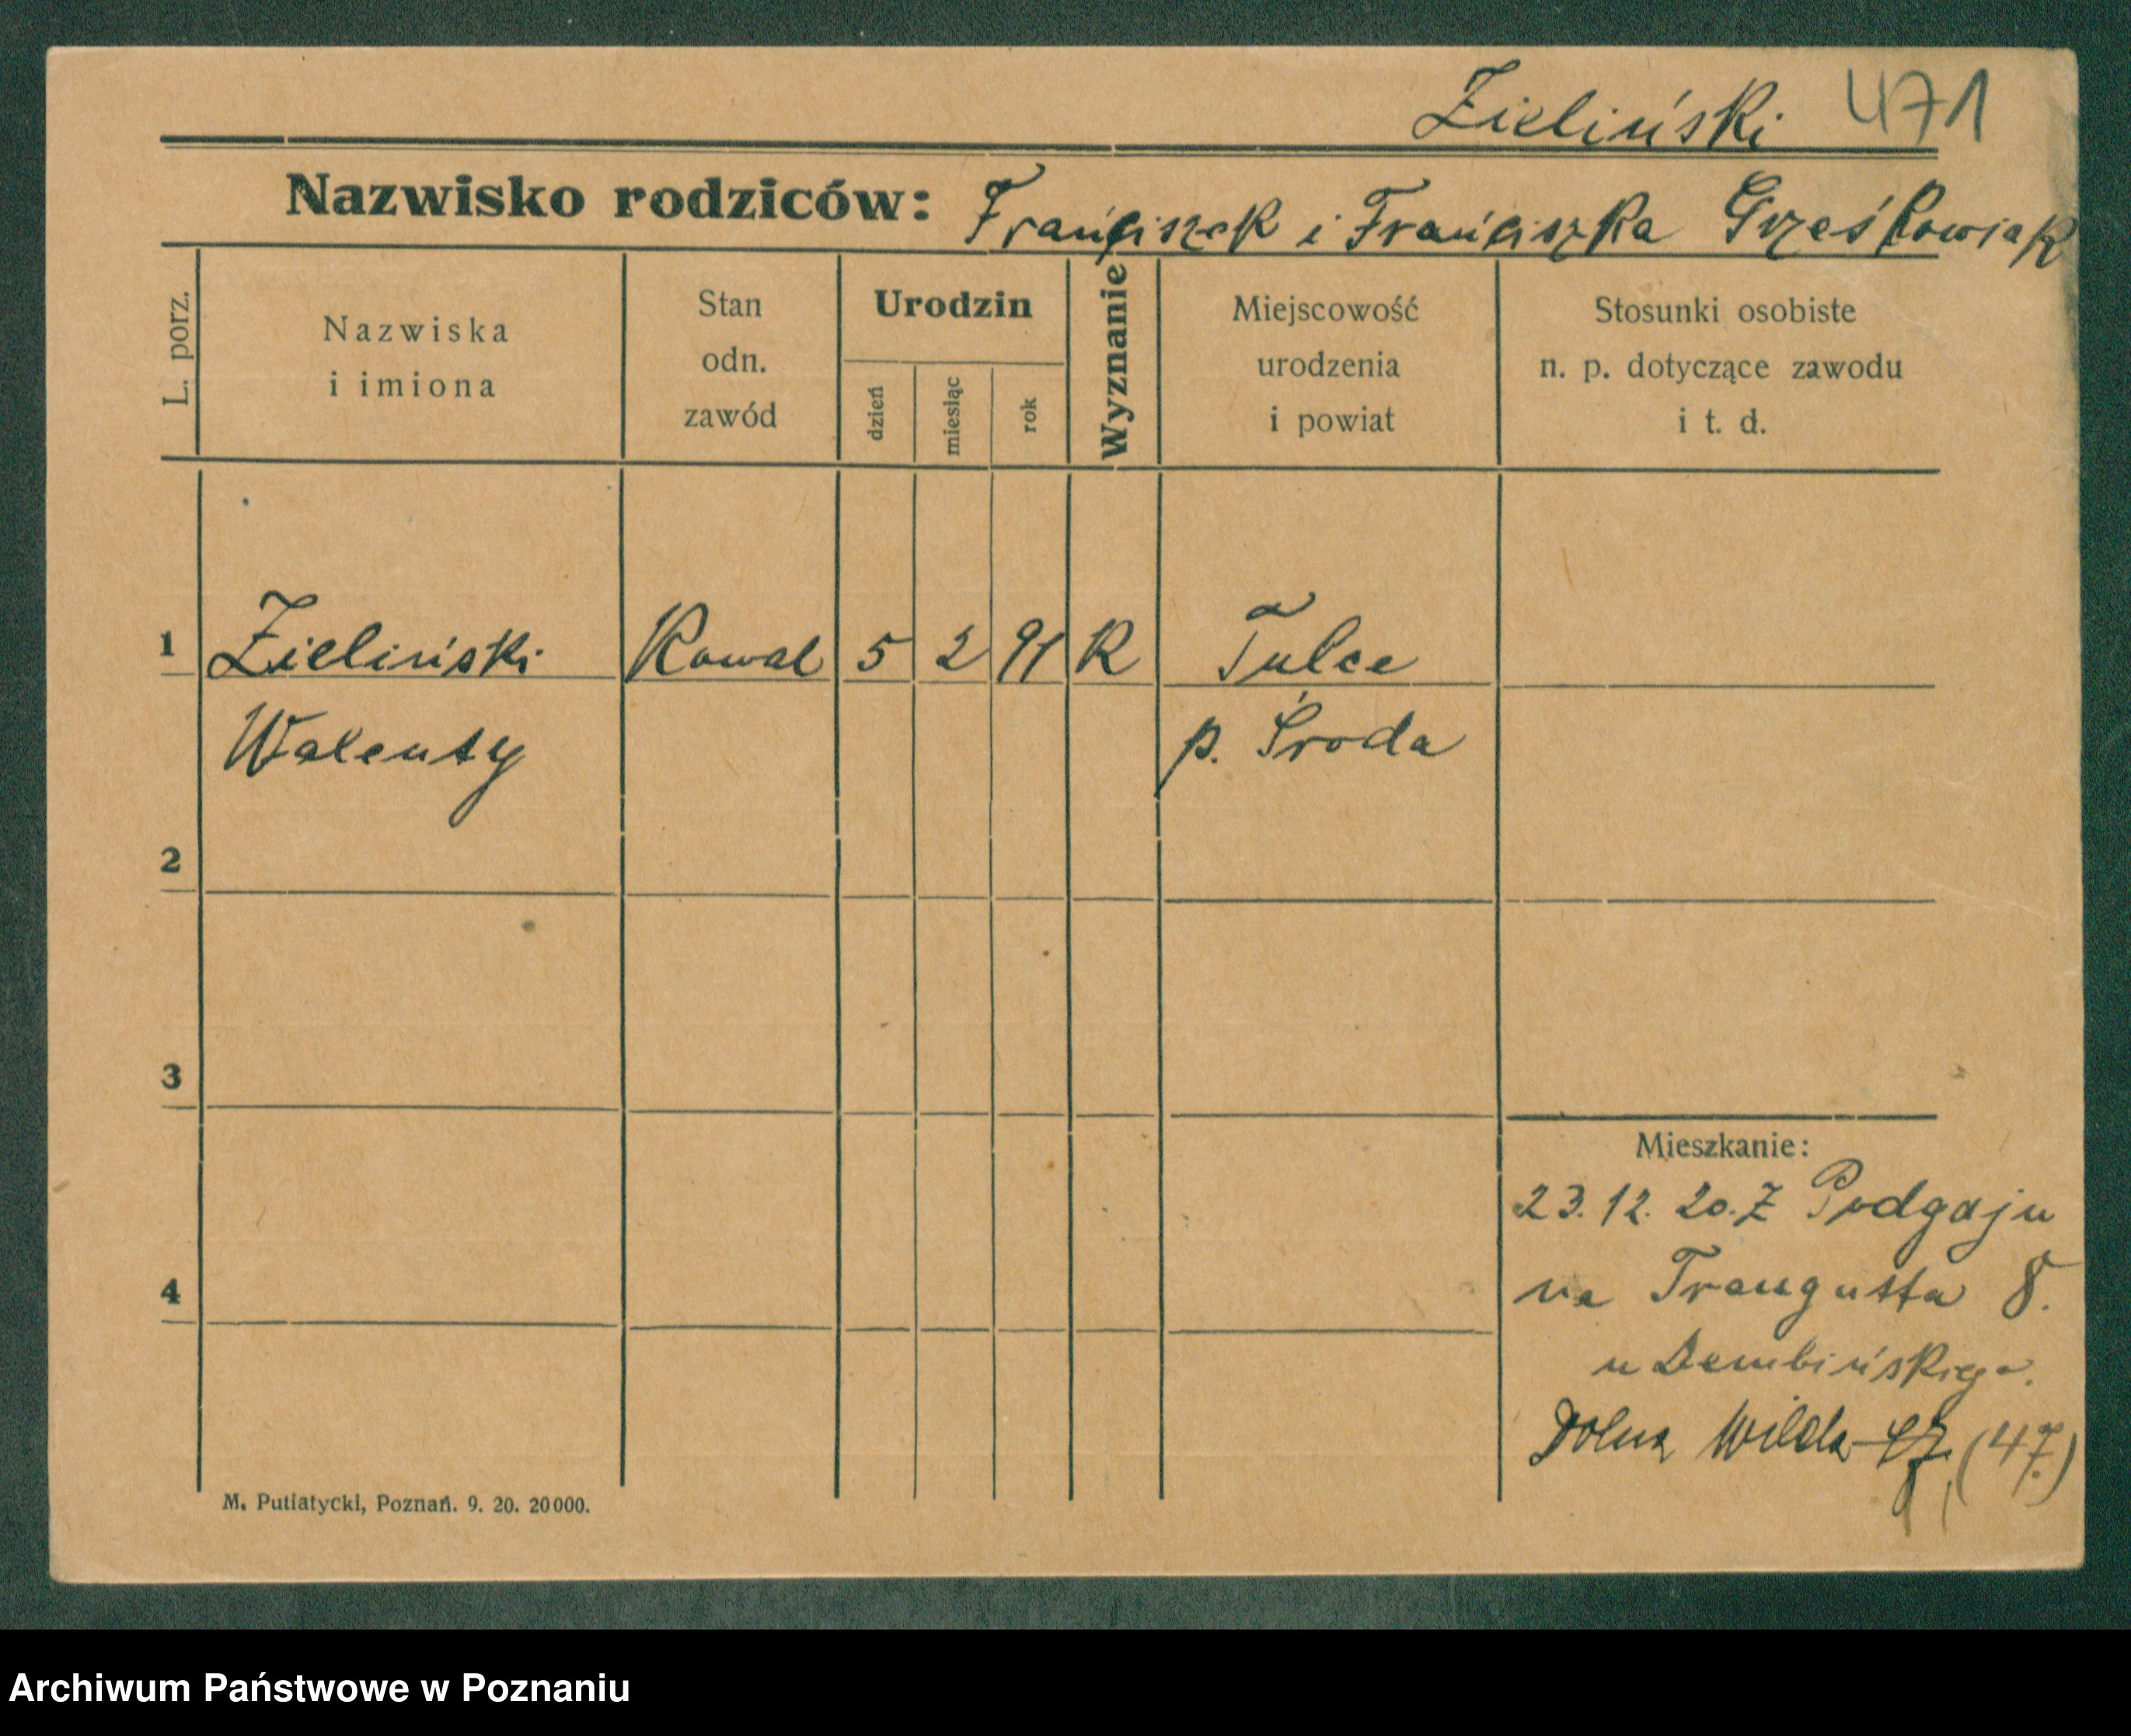 Zieliński 471
Nazwisko rodziców: Franciszek i Franciszka Grześkowiak
L. porz.
Nazwiska
i imiona
Stan
odn.
zawód
Urodzin
dzień
miesiąc
rok
Wyznanie
Miejscowość
urodzenia
i powiat
Stosunki osobiste
n. p. dotyczące zawodu
i t. d.
1 Zieliński Kowal 5 2 91 K Tulce
Walenty p. Środa
2
3
4
Mieszkanie:
23.12.20. Z Podgaju
na Traugutta 8.
u Dembińskiego.
Dolna Wilda 47. (47.)
M. Putiatycki, Poznań. 9. 20. 20000.
Archiwum Państwowe w Poznaniu